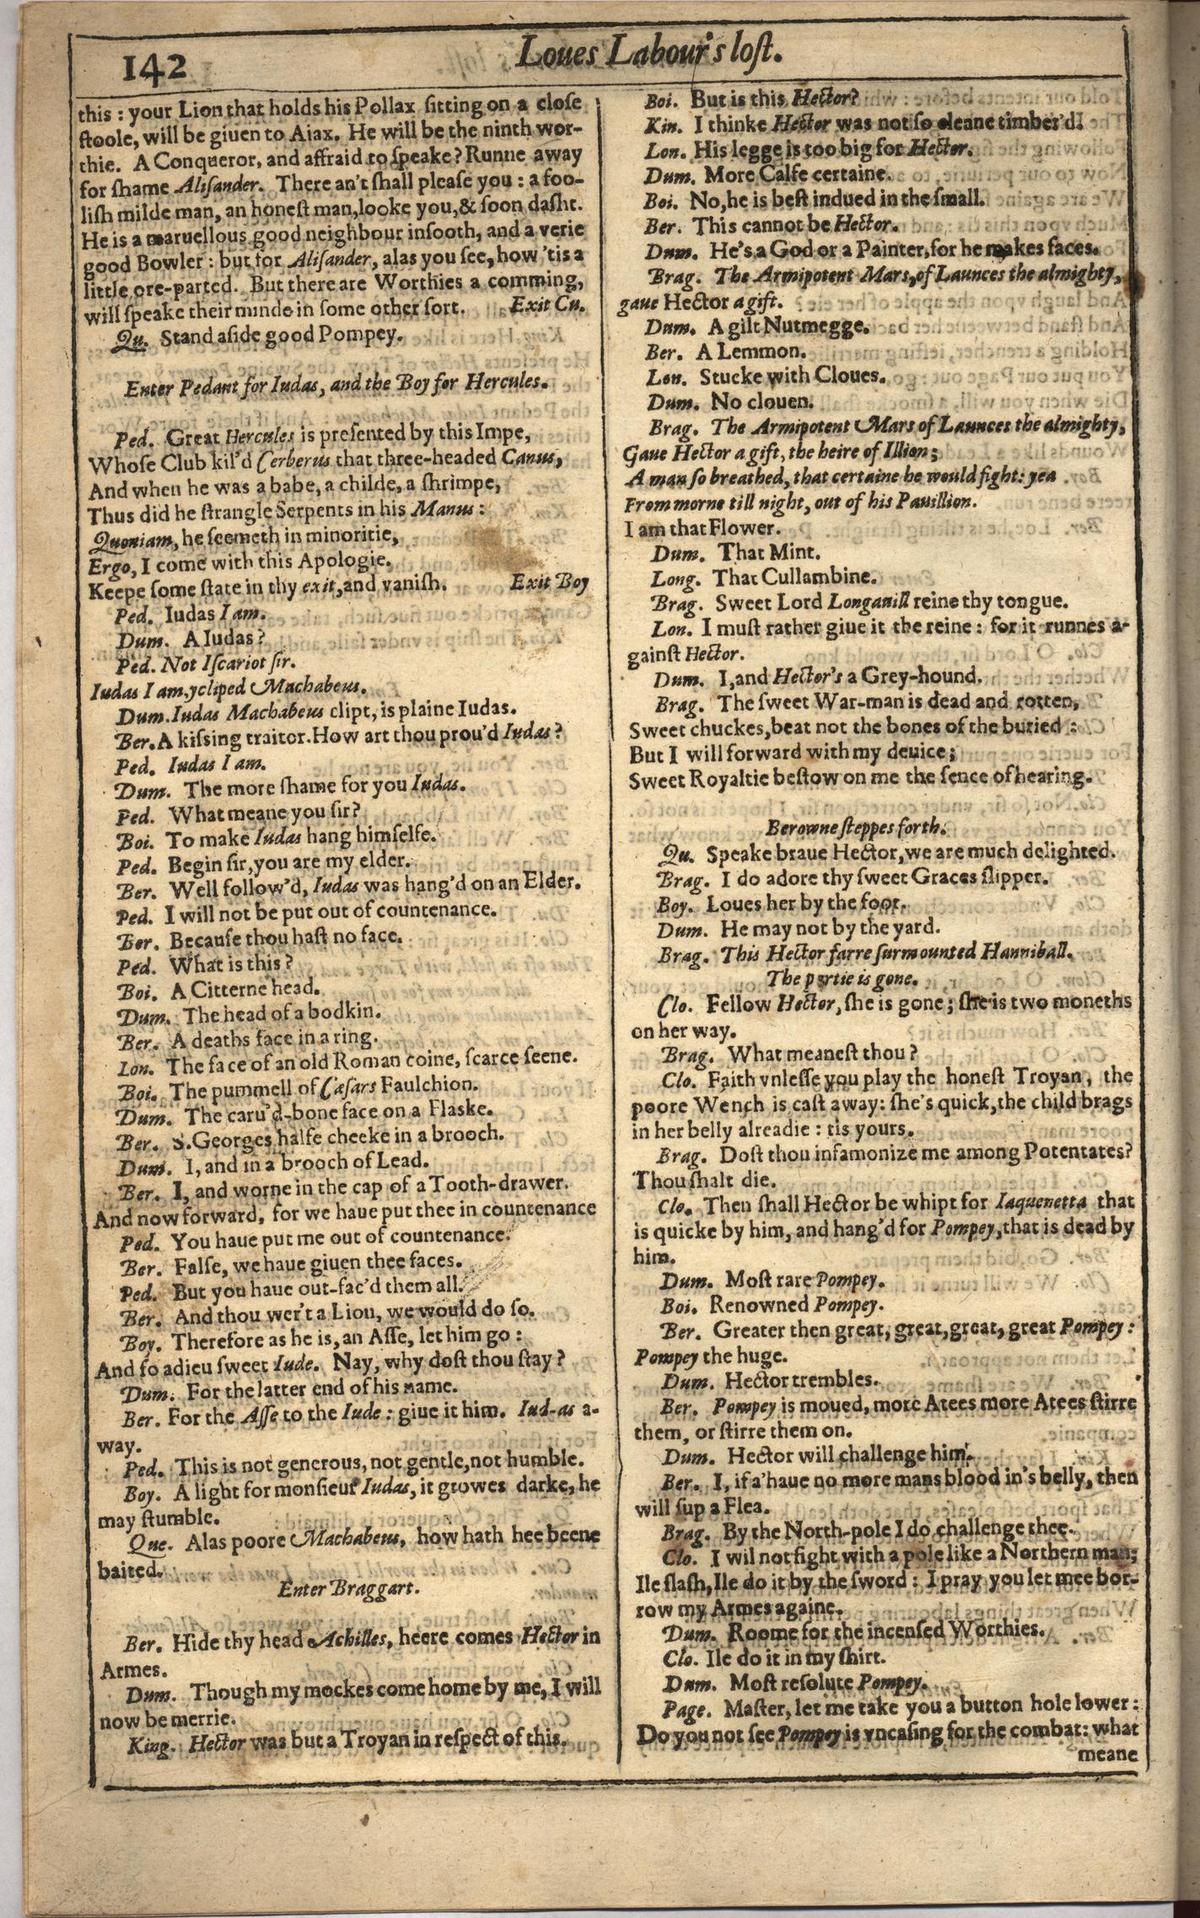 142
Loues Labour's lost.
this : your Lion that holds his Pollax sitting on a close
stoole, will be giuen to Aiax. He will be the ninth wor-
thie. A Conqueror, and affraid to speake? Runne away
for shame Alisander. There an't shall please you : a foo-
lish milde man, an honest man, looke you, & soon dasht.
He is a maruellous good neighbour insooth, and a verie
good Bowler : but for Alisander, alas you see, how 'tis a
little ore-parted. But there are Worthies a comming,
will speake their minde in some other sort. Exit Cu.
Qu. Stand aside good Pompey.
Enter Pedant for Iudas, and the Boy for Hercules.
Ped. Great Hercules is presented by this Impe,
Whose Club kil'd Cerberus that three-headed Canus,
And when he was a babe, a childe, a shrimpe,
Thus did he strangle Serpents in his Manus :
Quoniam, he seemeth in minoritie,
Ergo, I come with this Apologie.
Keepe some state in thy exit, and vanish. Exit Boy
Ped. Iudas I am.
Dum. A Iudas?
Ped. Not Iscariot sir.
Iudas I am, ycliped Machabeus.
Dum. Iudas Machabeus clipt, is plaine Iudas.
Ber. A kissing traitor. How art thou prou'd Iudas?
Ped. Iudas I am.
Dum. The more shame for you Iudas.
Ped. What meane you sir?
Boi. To make Iudas hang himselfe.
Ped. Begin sir, you are my elder.
Ber. Well follow'd, Iudas was hang'd on an Elder.
Ped. I will not be put out of countenance.
Ber. Because thou hast no face.
Ped. What is this?
Boi. A Citterne head.
Dum. The head of a bodkin.
Ber. A deaths face in a ring.
Lon. The face of an old Roman coine, scarce seene.
Boi. The pummell of Cæsars Faulchion.
Dum. The caru'd-bone face on a Flaske.
Ber. S. Georges halfe cheeke in a brooch.
Dum. I, and in a brooch of Lead.
Ber. I, and worne in the cap of a Tooth-drawer.
And now forward, for we haue put thee in countenance
Ped. You haue put me out of countenance.
Ber. False, we haue giuen thee faces.
Ped. But you haue out-fac'd them all.
Ber. And thou wer't a Lion, we would do so.
Boy. Therefore as he is, an Asse, let him go :
And so adieu sweet Iude. Nay, why dost thou stay?
Dum. For the latter end of his name.
Ber. For the Asse to the Iude : giue it him. Iud-as a-
way.
Ped. This is not generous, not gentle, not humble.
Boy. A light for monsieur Iudas, it growes darke, he
may stumble.
Que. Alas poore Machabeus, how hath hee beene
baited.
Enter Braggart.
Ber. Hide thy head Achilles, heere comes Hector in
Armes.
Dum. Though my mockes come home by me, I will
now be merrie.
King. Hector was but a Troyan in respect of this.
Boi. But is this Hector?
Kin. I thinke Hector was not so cleane timber'd.
Lon. His legge is too big for Hector.
Dum. More Calfe certaine.
Boi. No, he is best indued in the small.
Ber. This cannot be Hector.
Dum. He's a God or a Painter, for he makes faces.
Brag. The Armipotent Mars, of Launces the almighty,
gaue Hector a gift.
Dum. A gilt Nutmegge.
Ber. A Lemmon.
Lon. Stucke with Cloues.
Dum. No clouen.
Brag. The Armipotent Mars of Launces the almighty,
Gaue Hector a gift, the heire of Illion ;
A man so breathed, that certaine he would fight: yea
From morne till night, out of his Pauillion.
I am that Flower.
Dum. That Mint.
Long. That Cullambine.
Brag. Sweet Lord Longauill reine thy tongue.
Lon. I must rather giue it the reine : for it runnes a-
gainst Hector.
Dum. I, and Hector's a Grey-hound.
Brag. The sweet War-man is dead and rotten,
Sweet chuckes, beat not the bones of the buried :
But I will forward with my deuice ;
Sweet Royaltie bestow on me the sence of hearing.
Berowne steppes forth.
Qu. Speake braue Hector, we are much delighted.
Brag. I do adore thy sweet Graces slipper.
Boy. Loues her by the foot.
Dum. He may not by the yard.
Brag. This Hector farre surmounted Hanniball.
The partie is gone.
Clo. Fellow Hector, she is gone ; she is two moneths
on her way.
Brag. What meanest thou?
Clo. Faith vnlesse you play the honest Troyan, the
poore Wench is cast away: she's quick, the child brags
in her belly alreadie : tis yours.
Brag. Dost thou infamonize me among Potentates?
Thou shalt die.
Clo. Then shall Hector be whipt for Iaquenetta that
is quicke by him, and hang'd for Pompey, that is dead by
him.
Dum. Most rare Pompey.
Boi. Renowned Pompey.
Ber. Greater then great, great, great, great Pompey :
Pompey the huge.
Dum. Hector trembles.
Ber. Pompey is moued, more Atees more Atees stirre
them, or stirre them on.
Dum. Hector will challenge him.
Ber. I, if a'haue no more mans blood in's belly, then
will sup a Flea.
Brag. By the North-pole I do challenge thee.
Clo. I wil not fight with a pole like a Northern man;
Ile slash, Ile do it by the sword : I pray you let mee bor-
row my Armes againe.
Dum. Roome for the incensed Worthies.
Clo. Ile do it in my shirt.
Dum. Most resolute Pompey.
Page. Master, let me take you a button hole lower :
Do you not see Pompey is vncasing for the combat: what
meane